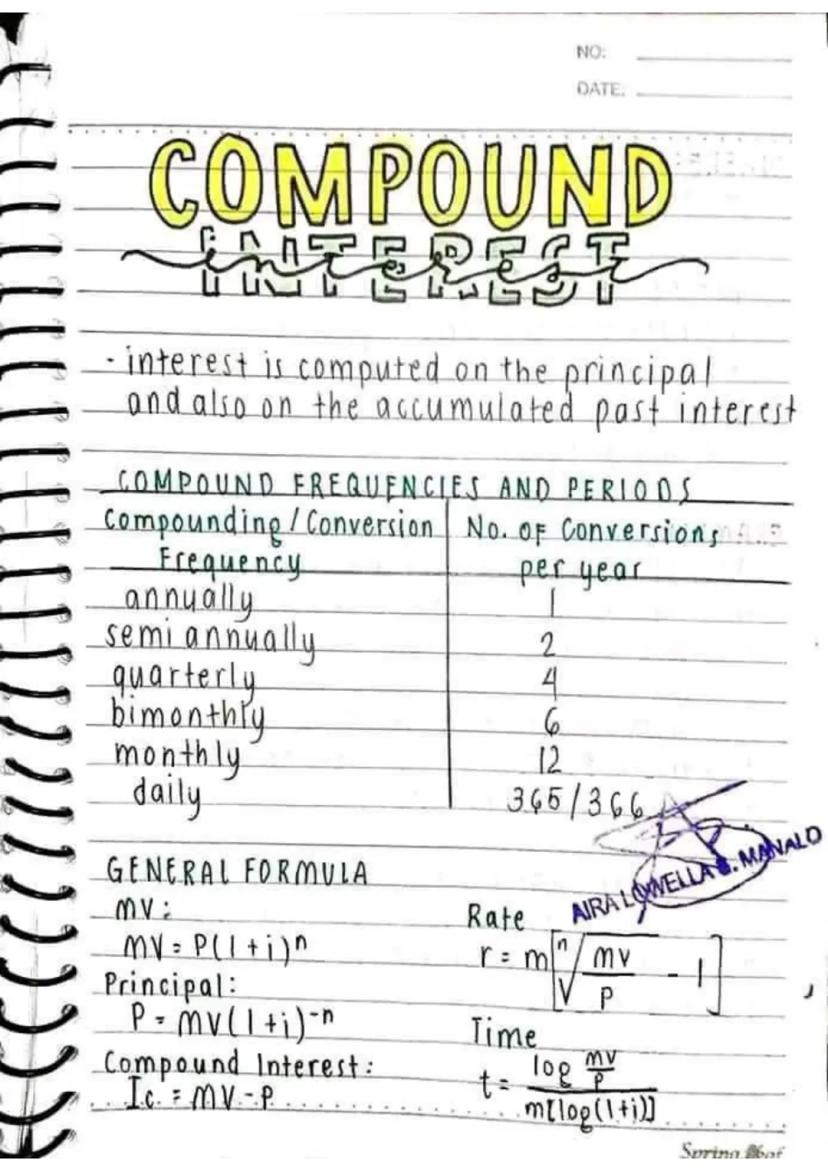 NO:
DATE:
COMPOUND
INTEREST
interest
- interest is computed on the principal
and also on the accumulated past interest
COMPOUND FREQUENCIES AND PERIODS
Compounding / Conversion Frequency | No. of Conversions per year
annually | 1
semi annually | 2
quarterly | 4
bimonthly | 6
monthly | 12
daily | 365/366
AIRA LOWELLA S. MANALO
GENERAL FORMULA
MV:
MV = P(1+i)^n
Principal:
P = MV(1+i)^-n
Compound Interest:
Ic. = MV - P
Rate
r = m[ⁿ√(MV/P) - 1]
Time
t = log MV/P / m[log(1+i)]
Spring leaf